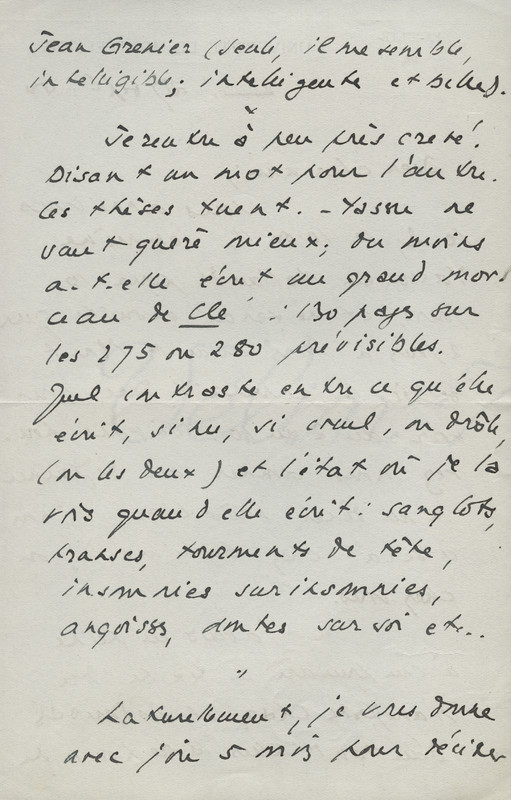 Jean Grenier (seule, il me semble,
intelligible; intelligente et belle).
*
Je rentre à peu près crevé.
Disant un mot pour l'autre.
Les thèses tuent. - Yassu ne
vaut guère mieux; du moins
a-t-elle écrit un grand mor-
ceau de Clé : 130 pages sur
les 275 ou 280 prévisibles.
Quel contraste entre ce qu'elle
écrit, si nu, si cruel, ou drôle,
(ou les deux) et l'état où je la
vois quand elle écrit : sanglots,
transes, tourments de tête,
insomnies sur insomnies,
angoisses, doutes sur soi etc..
"
Naturellement, je vous donne
avec joie 5 mois pour décider